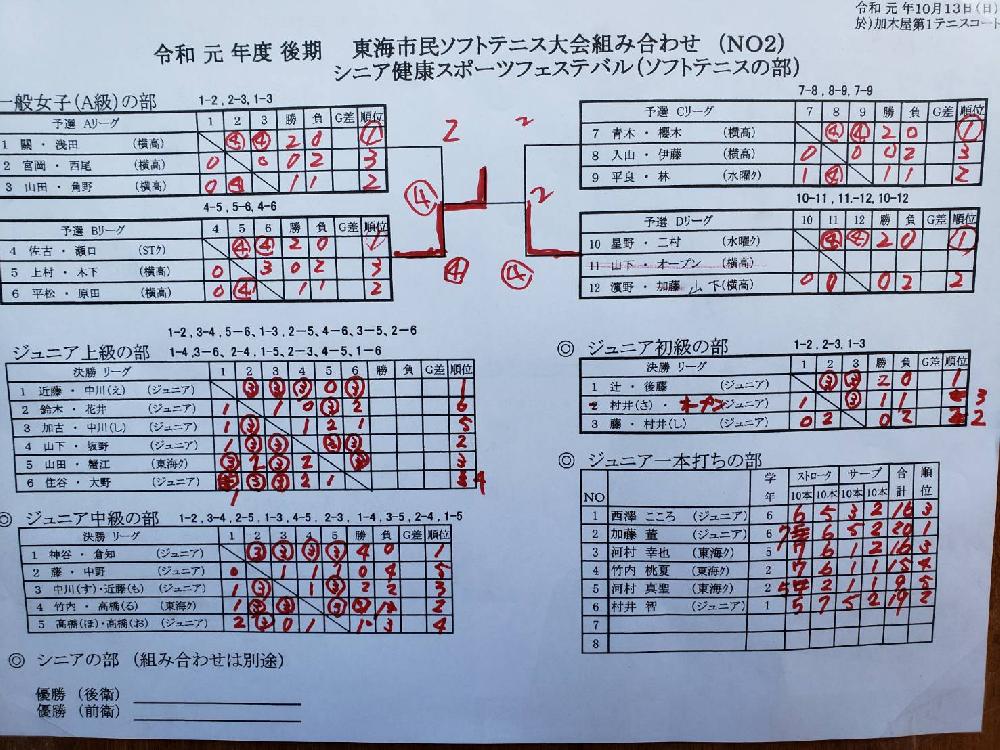 令和 元 年10月13日(日)
於)加木屋第1テニスコート
令和 元 年度 後期 東海市民ソフトテニス大会組み合わせ (NO2)
シニア健康スポーツフェステバル(ソフトテニスの部)
一般女子(A級)の部 1-2, 2-3, 1-3
予選 Aリーグ 1 2 3 勝 負 G差 順位
1 關 ・ 浅田 (横高) ④ ④ 2 0 ①
2 宮岡 ・ 西尾 (横高) 0 0 0 2 3
3 山田 ・ 角野 (横高) 0 ④ 1 1 2
4-5, 5-6, 4-6
予選 Bリーグ 4 5 6 勝 負 G差 順位
4 佐古 ・ 瀬口 (STク) ④ ④ 2 0 1
5 上村 ・ 木下 (横高) 0 3 0 2 3
6 平松 ・ 原田 (横高) 0 ④ 1 1 2
2 2
④ 2
④ ④
7-8, 8-9, 7-9
予選 Cリーグ 7 8 9 勝 負 G差 順位
7 青木 ・ 櫻木 (横高) ④ ④ 2 0 ①
8 入山 ・ 伊藤 (横高) 0 0 0 2 3
9 平良 ・ 林 (水曜ク) 1 ④ 1 1 2
10-11, 11.-12, 10-12
予選 Dリーグ 10 11 12 勝 負 G差 順位
10 星野 ・ 二村 (水曜ク) ④ ④ 2 0 ①
11 山下 ・ オープン (横高)
12 濱野 ・ 加藤 山下(横高) 0 0 0 2 2
1-2, 3-4, 5-6, 1-3, 2-5, 4-6, 3-5, 2-6
ジュニア上級の部 1-4, 3-6, 2-4, 1-5, 2-3, 4-5, 1-6
決勝 リーグ 1 2 3 4 5 6 勝 負 G差 順位
1 近藤 ・ 中川(え) (ジュニア) ③ ③ ③ 0 ③ 1
2 鈴木 ・ 花井 (ジュニア) 1 1 0 ③ 2 6
3 加古 ・ 中川(し) (ジュニア) 1 ③ 1 2 1 5
4 山下 ・ 坂野 (ジュニア) 1 ③ ③ ③ ③ 2
5 山田 ・ 蟹江 (東海ク) ③ 2 ③ 2 3
6 住谷 ・ 大野 (ジュニア) ③ ③ 2 1 4
1
◎ ジュニア初級の部 1-2, 2-3, 1-3
決勝 リーグ 1 2 3 勝 負 G差 順位
1 辻 ・ 後藤 (ジュニア) ③ ③ 2 0 1
2 村井(さ) ・ オープン (ジュニア) 1 ③ 1 1 3
3 藤 ・ 村井(し) (ジュニア) 0 2 0 2 2
◎ ジュニア中級の部 1-2, 3-4, 2-5, 1-3, 4-5, 2-3, 1-4, 3-5, 2-4, 1-5
決勝 リーグ 1 2 3 4 5 勝 負 G差 順位
1 神谷 ・ 倉知 (ジュニア) ③ ③ ③ ③ 4 0 1
2 藤 ・ 中野 (ジュニア) 0 1 1 0 4 5
3 中川(す) ・ 近藤(も) (ジュニア) 1 ③ 1 ③ 2 2 3
4 竹内 ・ 高橋(る) (東海ク) 1 ③ ③ ③ 2
5 高橋(ほ) ・ 高橋(お) (ジュニア) 2 ③ 0 1 1 3 4
◎ ジュニア一本打ちの部
NO 学年 ストローク サーブ 合計 順位
10本 10本 10本 10本
1 西澤 こころ (ジュニア) 6 6 5 3 2 16 3
2 加藤 菫 (ジュニア) 6 7 6 5 2 20 1
3 河村 幸也 (東海ク) 5 7 6 1 2 16 3
4 竹内 桃夏 (東海ク) 2 7 6 1 1 15 4
5 河村 真聖 (東海ク) 2 2 1 1 9 5
6 村井 智 (ジュニア) 1 5 7 5 2 19 2
7
8
◎ シニアの部 (組み合わせは別途)
優勝 (後衛)
優勝 (前衛)